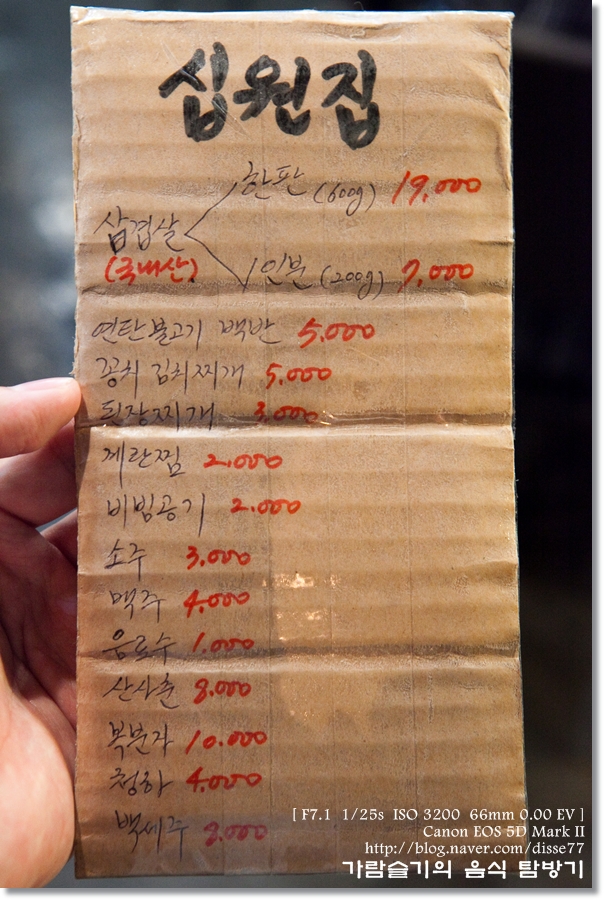 십원집
한판 (600g) 19,000
삼겹살
(국내산)
1인분 (200g) 7,000
연탄불고기 백반 5,000
꽁치 김치찌개 5,000
된장찌개 3,000
계란찜 2,000
비빔공기 2,000
소주 3,000
맥주 4,000
음료수 1,000
산사춘 8,000
복분자 10,000
청하 4,000
백세주 8,000
[ F7.1 1/25s ISO 3200 66mm 0.00 EV ]
Canon EOS 5D Mark II
http://blog.naver.com/disse77
가람슬기의 음식 탐방기